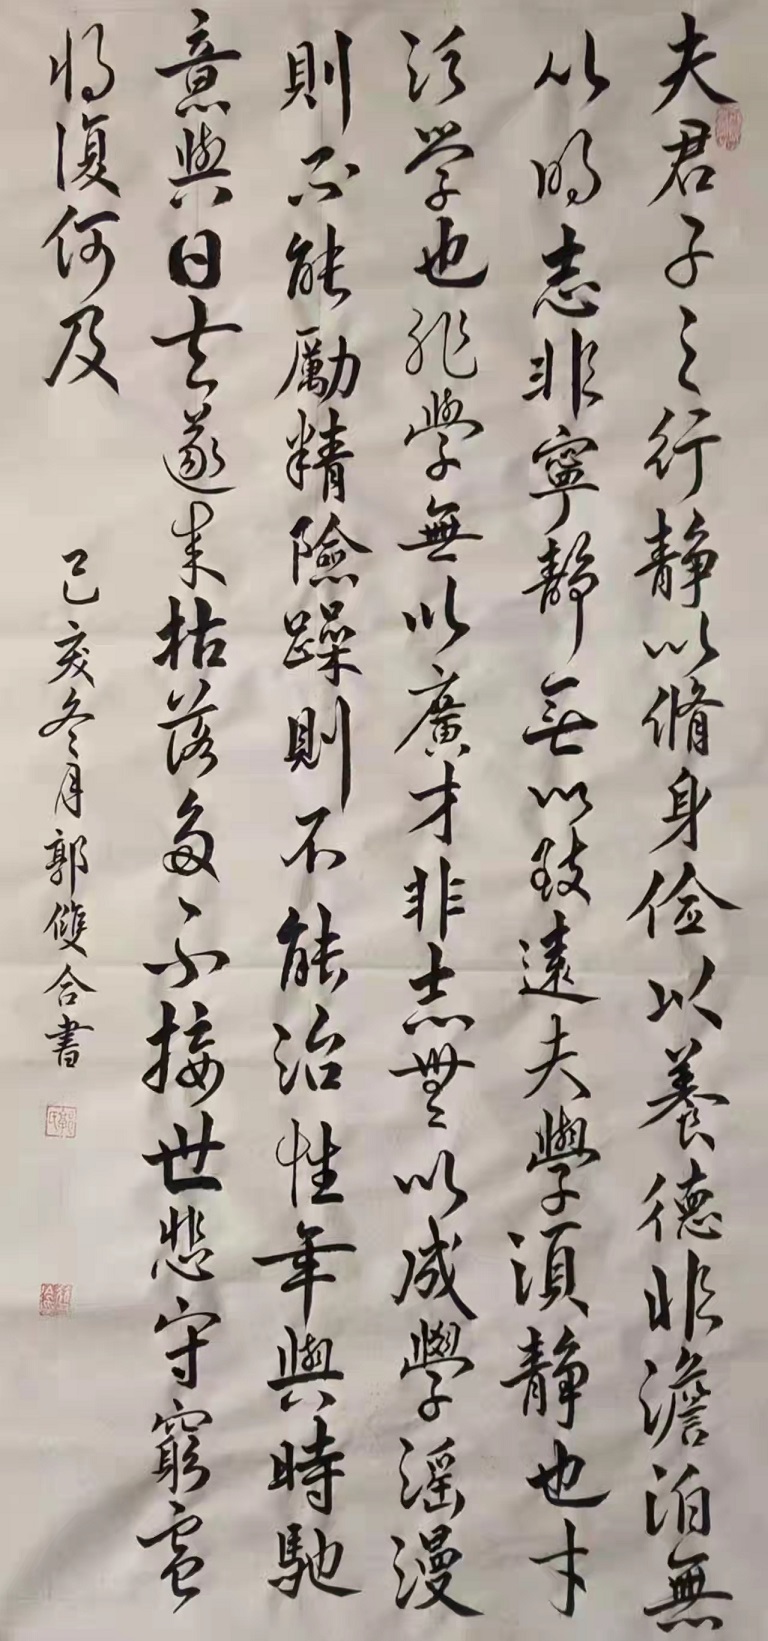 夫君子之行静以脩身俭以養德非澹泊無
以明志非寧静無以致遠夫學須静也才
须学也非學無以廣才非志無以成學滛漫
則不能勵精險躁則不能治性年與時馳
意與日去遂成枯落多不接世悲守窮廬
将復何及
己亥冬月郭雙合書